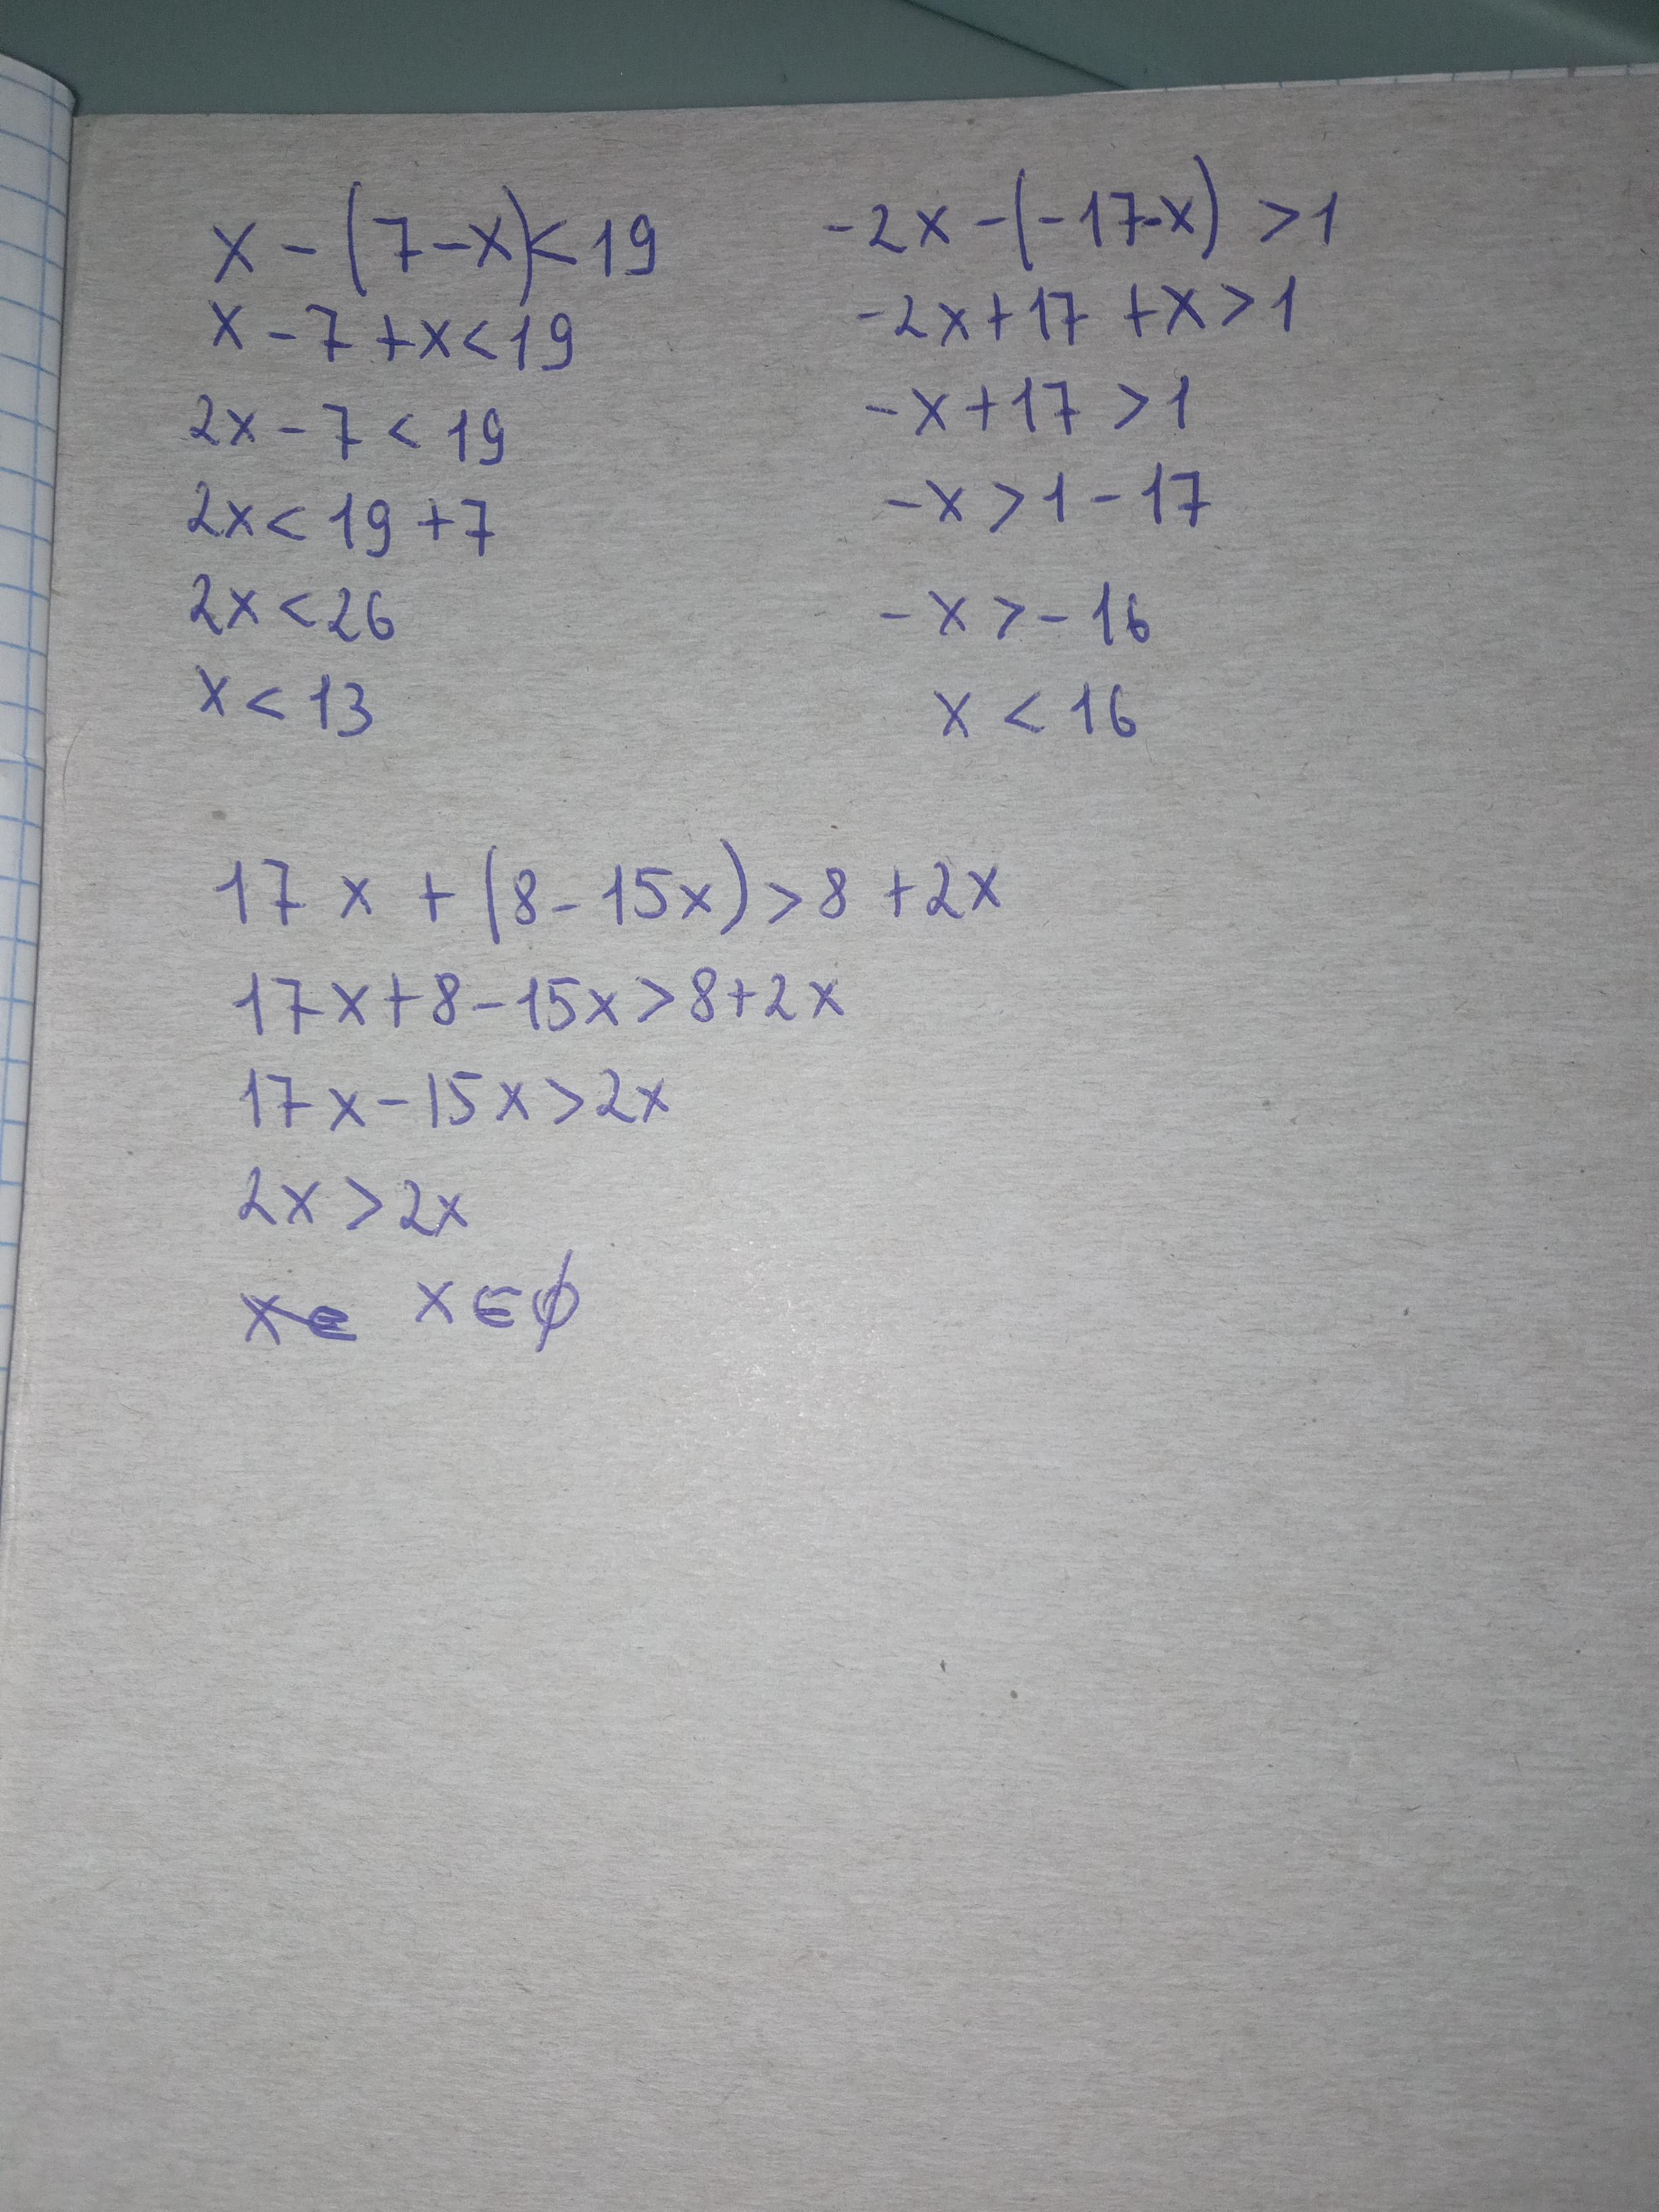 x - (7-x) < 19
x - 7 + x < 19
2x - 7 < 19
2x < 19 + 7
2x < 26
x < 13
-2x - (-17-x) > 1
-2x + 17 + x > 1
-x + 17 > 1
-x > 1 - 17
-x > -16
x < 16
17x + (8 - 15x) > 8 + 2x
17x + 8 - 15x > 8 + 2x
17x - 15x > 2x
2x > 2x
x ∈ x ∈ ∅